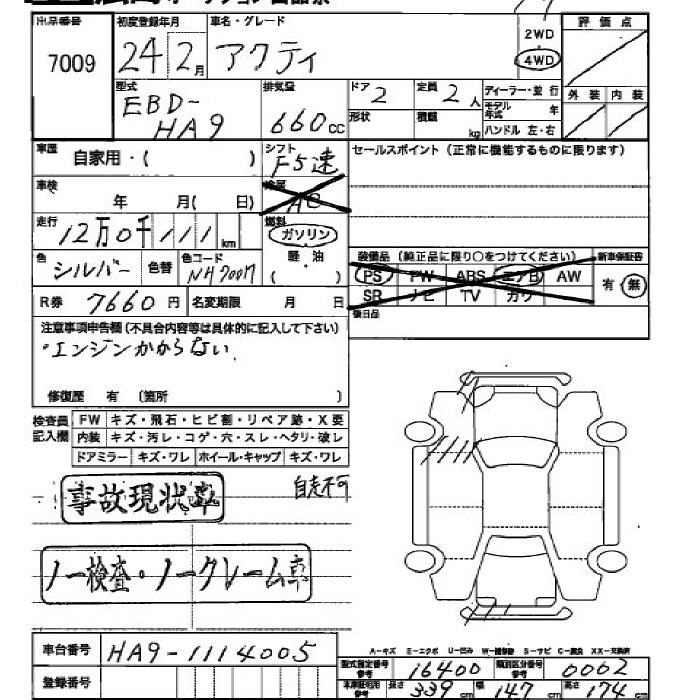 出品番号 初度登録年月 車名・グレード 2WD 評価点
7009 24年2月 アクティ 4WD
型式 排気量 ドア 定員 ディーラー・並行 外装 内装
EBD- 2 2人 モデル年式 年
HA9 660cc 形状 積載 kg ハンドル 左・右
車歴 自家用・( ) シフト F5速 セールスポイント (正常に機能するものに限ります)
車検 年 月( 日) AC
走行 12万0千111km 燃料 ガソリン
色 シルバー 色替 色コード NH700M 軽・油 ( )
装備品 (純正品に限り○をつけてください) 新車保証書
PS PW ABS エアB AW 有・無
SR ナビ TV カワ
R券 7660円 名変期限 月 日
後日品
注意事項申告欄(不具合内容等は具体的に記入して下さい)
・エンジンかからない.
修復歴 有 (箇所 )
検査員記入欄 FW キズ・飛石・ヒビ割・リペア跡・X要
内装 キズ・汚レ・コゲ・穴・スレ・ヘタリ・破レ
ドアミラー キズ・ワレ ホイール・キャップ キズ・ワレ
事故現状車 自走不可
ノー検査・ノークレーム車
A-キズ E-エクボ U-凹ミ W-補修跡 S-サビ C-腐食 XX-交換済
車台番号 HA9-1114005
型式指定番号 参考 16400 類別区分番号 参考 0002
登録番号
長さ 339cm 幅 147cm 高さ 174cm